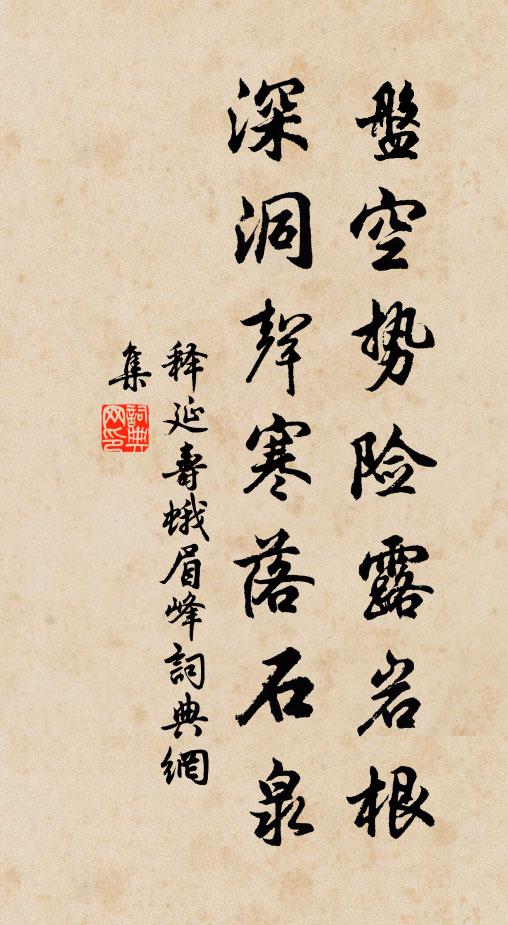 盤空势险露岩根
深洞聲寒落石泉
释延壽蛾眉峰詞典網
集
詞典网印